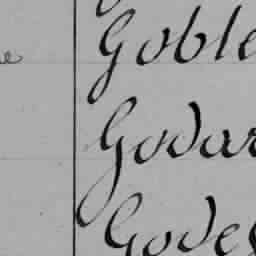 Goble
Godar
Godes